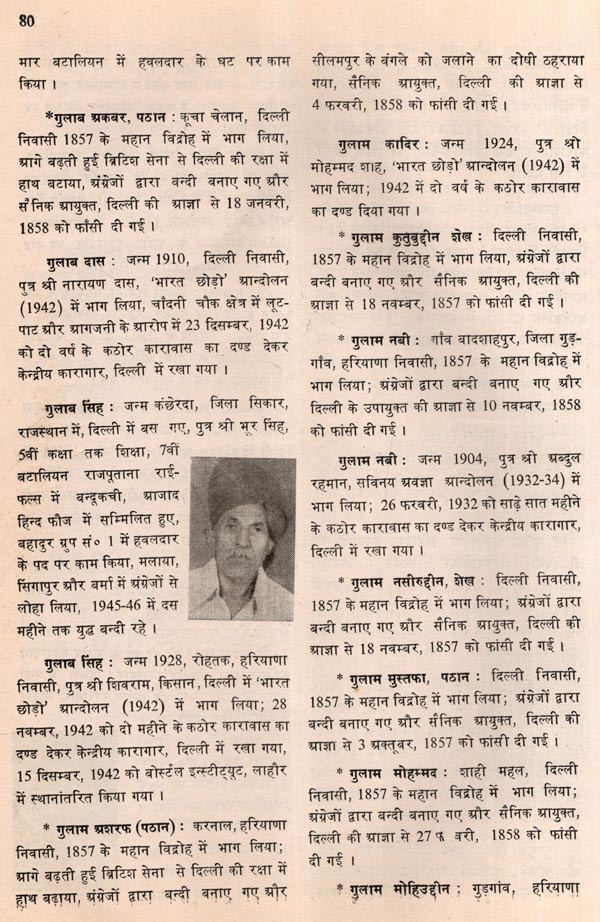 80
मार बटालियन में हवलदार के घट पर काम
किया ।
*गुलाब अकबर, पठान : कूचा चेलान, दिल्ली
निवासी 1857 के महान विद्रोह में भाग लिया,
आगे बढ़ती हुई ब्रिटिश सेना से दिल्ली की रक्षा में
हाथ बटाया, अंग्रेजों द्वारा बन्दी बनाए गए और
सैनिक आयुक्त, दिल्ली की आज्ञा से 18 जनवरी,
1858 को फाँसी दी गई ।
गुलाब दास : जन्म 1910, दिल्ली निवासी,
पुत्र श्री नारायण दास, 'भारत छोड़ो' आन्दोलन
(1942) में भाग लिया, चांदनी चौक क्षेत्र में लूट-
पाट और आगजनी के आरोप में 23 दिसम्बर, 1942
को दो वर्ष के कठोर कारावास का दण्ड देकर
केन्द्रीय कारागार, दिल्ली में रखा गया ।
गुलाब सिंह : जन्म कंछेरदा, जिला सिकार,
राजस्थान में, दिल्ली में बस गए, पुत्र श्री भूर सिंह,
5वीं कक्षा तक शिक्षा, 7वीं
बटालियन राजपूताना राई-
फल्स में बन्दूकची, आजाद
हिन्द फौज में सम्मिलित हुए,
बहादुर ग्रुप सं० 1 में हवलदार
के पद पर काम किया, मलाया,
सिंगापुर और बर्मा में अंग्रेजों से
लोहा लिया, 1945-46 में दस
महीने तक युद्ध बन्दी रहे ।
गुलाब सिंह : जन्म 1928, रोहतक, हरियाणा
निवासी, पुत्र श्री शिवराम, किसान, दिल्ली में 'भारत
छोड़ो' आन्दोलन (1942) में भाग लिया; 28
नवम्बर, 1942 को दो महीने के कठोर कारावास का
दण्ड देकर केन्द्रीय कारागार, दिल्ली में रखा गया,
15 दिसम्बर, 1942 को बोर्स्टल इन्स्टीट्यूट, लाहौर
में स्थानांतरित किया गया ।
* गुलाम अशरफ (पठान) : करनाल, हरियाणा
निवासी, 1857 के महान विद्रोह में भाग लिया;
आगे बढ़ती हुई ब्रिटिश सेना से दिल्ली की रक्षा में
हाथ बढ़ाया, अंग्रेजों द्वारा बन्दी बनाए गए और
सीलमपुर के बंगले को जलाने का दोषी ठहराया
गया, सैनिक आयुक्त, दिल्ली की आज्ञा से
4 फरवरी, 1858 को फांसी दी गई ।
गुलाम कादिर : जन्म 1924, पुत्र श्री
मोहम्मद शाह, 'भारत छोड़ो' आन्दोलन (1942) में
भाग लिया; 1942 में दो वर्ष के कठोर कारावास
का दण्ड दिया गया ।
* गुलाम कुतुबुद्दीन शेख : दिल्ली निवासी,
1857 के महान विद्रोह में भाग लिया, अंग्रेजों द्वारा
बन्दी बनाए गए और सैनिक आयुक्त, दिल्ली की
आज्ञा से 18 नवम्बर, 1857 को फांसी दी गई ।
* गुलाम नबी : गाँव बादशाहपुर, जिला गुड़-
गाँव, हरियाणा निवासी, 1857 के महान विद्रोह में
भाग लिया; अंग्रेजों द्वारा बन्दी बनाए गए और
दिल्ली के उपायुक्त की आज्ञा से 10 नवम्बर, 1858
को फांसी दी गई ।
गुलाम नबी : जन्म 1904, पुत्र श्री अब्दुल
रहमान, सविनय अवज्ञा आन्दोलन (1932-34) में
भाग लिया; 26 फरवरी, 1932 को साढ़े सात महीने
के कठोर कारावास का दण्ड देकर केन्द्रीय कारागार,
दिल्ली में रखा गया ।
* गुलाम नसीरुद्दीन, शेख : दिल्ली निवासी,
1857 के महान विद्रोह में भाग लिया; अंग्रेजों द्वारा
बन्दी बनाए गए और सैनिक आयुक्त, दिल्ली की
आज्ञा से 18 नवम्बर, 1857 को फांसी दी गई ।
* गुलाम मुस्तफा, पठान : दिल्ली निवासी,
1857 के महान विद्रोह में भाग लिया; अंग्रेजों द्वारा
बन्दी बनाए गए और सैनिक आयुक्त, दिल्ली की
आज्ञा से 3 अक्तूबर, 1857 को फांसी दी गई ।
* गुलाम मोहम्मद : शाही महल, दिल्ली
निवासी, 1857 के महान विद्रोह में भाग लिया;
अंग्रेजों द्वारा बन्दी बनाए गए और सैनिक आयुक्त,
दिल्ली की आज्ञा से 27 फ वरी, 1858 को फांसी
दी गई ।
* गुलाम मोहिउद्दीन : गुड़गांव, हरियाणा